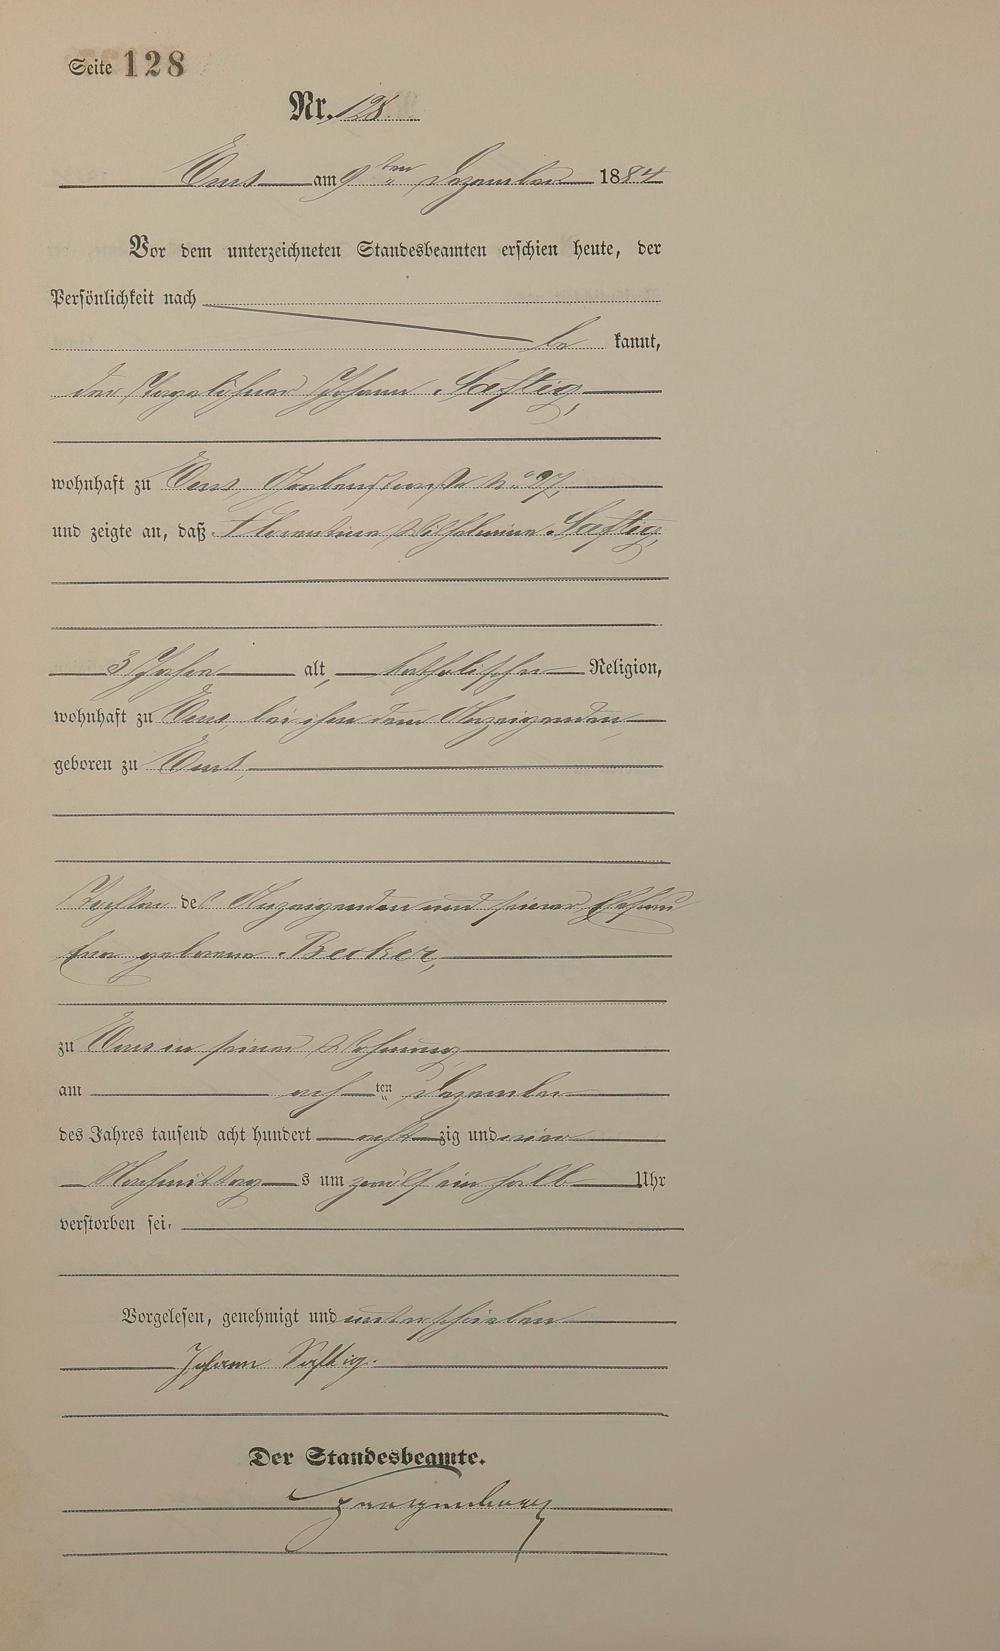 Seite 128
Nr. 128
Ems am 9ten Dezember 1884
Vor dem unterzeichneten Standesbeamten erschien heute, der
Persönlichkeit nach
be kannt,
der Tagelöhner Johann Saftig,
wohnhaft zu Ems, No 97,
und zeigte an, daß Florentine Wilhelmine Saftig,
3 Jahre alt, katholischer Religion,
wohnhaft zu Ems, bei ihm dem Anzeigenden,
geboren zu Ems,
Tochter des Anzeigenden und seiner Ehefrau
Eva geborene Becker,
zu Ems in seiner Wohnung,
am achten Dezember
des Jahres tausend acht hundert achtzig und vier
Nachmittags um zwölf ein halb Uhr
verstorben sei.
Vorgelesen, genehmigt und unterschrieben
Johann Saftig.
Der Standesbeamte.